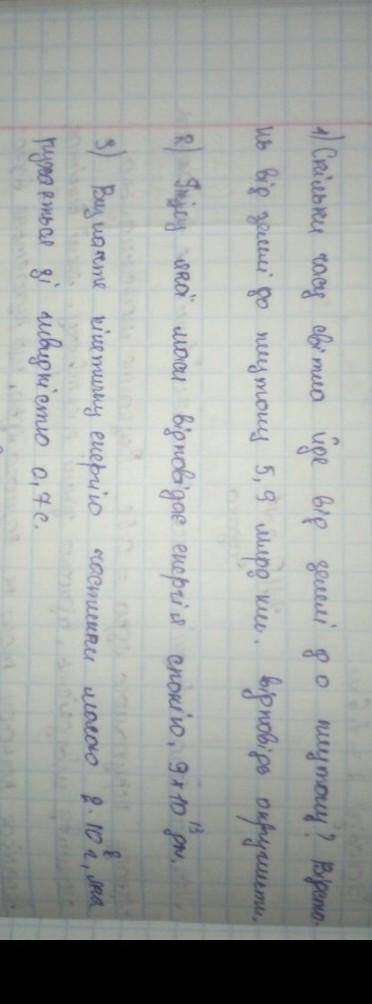 1) Скільки часу світло йде від землі до плутону? Відста-
нь від землі до плутону 5,9 млрд км. Відповідь округлити.
2) Тілу якої маси відповідає енергія спокою, 9×10¹³ дж.
3) Визначте кінетичну енергію частинки масою 2·10⁸ г, яка
рухається зі швидкістю 0,7с.